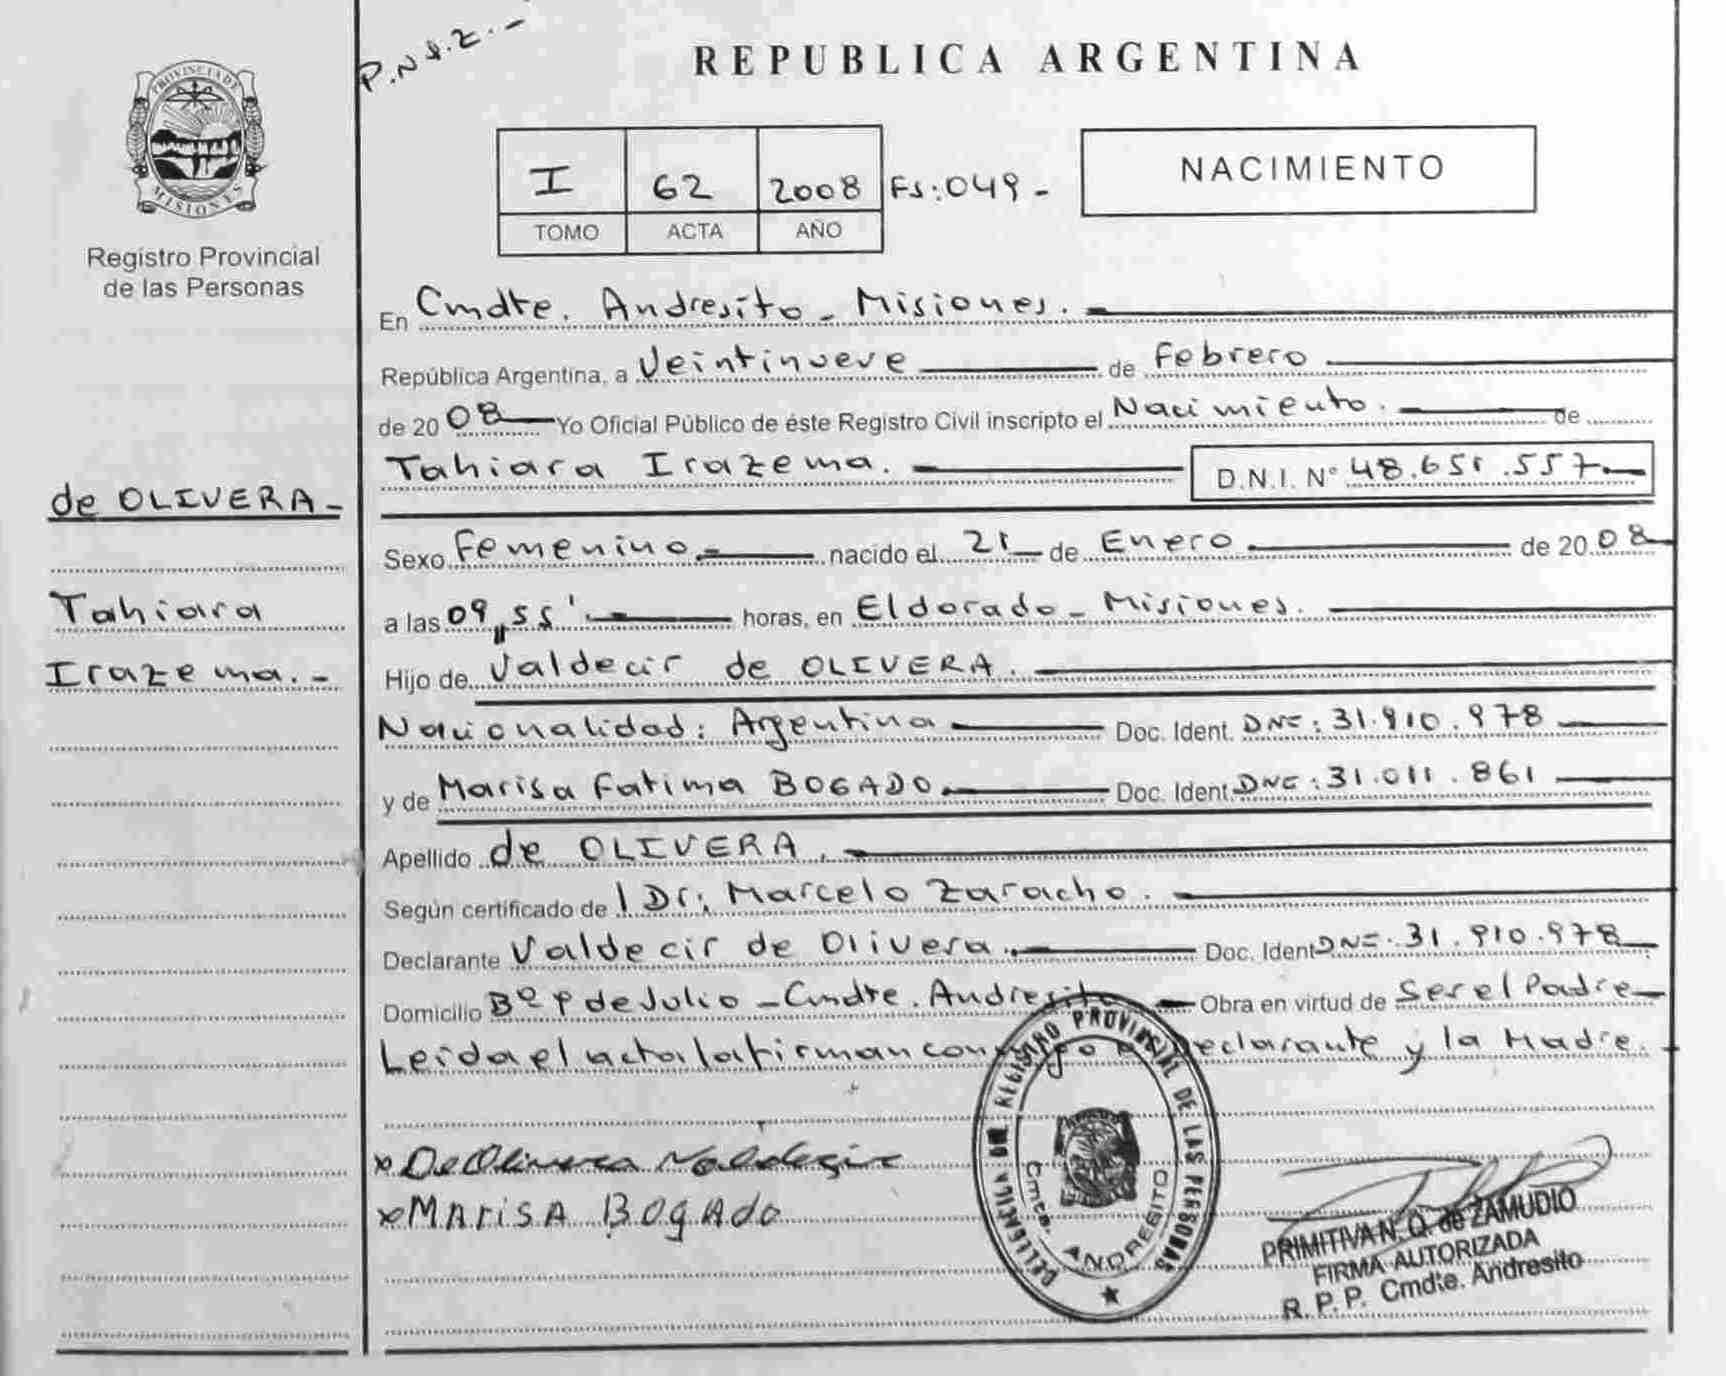 P.N.f.Z.-
REPUBLICA ARGENTINA
PROVINCIA DE MISIONES
Registro Provincial
de las Personas
I 62 2008 Fs:049-
TOMO ACTA AÑO
NACIMIENTO
En Cmdte. Andresito - Misiones.
República Argentina, a Veintinueve de Febrero
de 2008 Yo Oficial Público de éste Registro Civil inscripto el Nacimiento. de
Tahiara Irazema. D.N.I. N° 48.651.557
de OLIVERA-
Sexo Femenino nacido el 21 de Enero de 2008
Tahiara
a las 09,,55' horas, en Eldorado - Misiones.
Irazema.-
Hijo de Valdecir de OLIVERA.
Nacionalidad: Argentina Doc. Ident. DNI: 31.910.978
y de Marisa Fatima BOGADO Doc. Ident. DNI: 31.011.861
Apellido de OLIVERA.
Según certificado de Dr; Marcelo Zaracho.
Declarante Valdecir de Olivera. Doc. Ident. DNI: 31.910.978
Domicilio Bº 9 de Julio - Cmdte. Andresito Obra en virtud de Ser el Padre
Leida el acta la firman conmigo el Declarante y la Madre.
x De Olivera Valdecir
x MArisA BOgAdo
DELEGACIA DEL REGISTRO PROVINCIAL DE LAS PERSONAS
Cmte. ANDRESITO
PRIMITIVA N. Q. de ZAMUDIO
FIRMA AUTORIZADA
R. P. P. Cmdte. Andresito